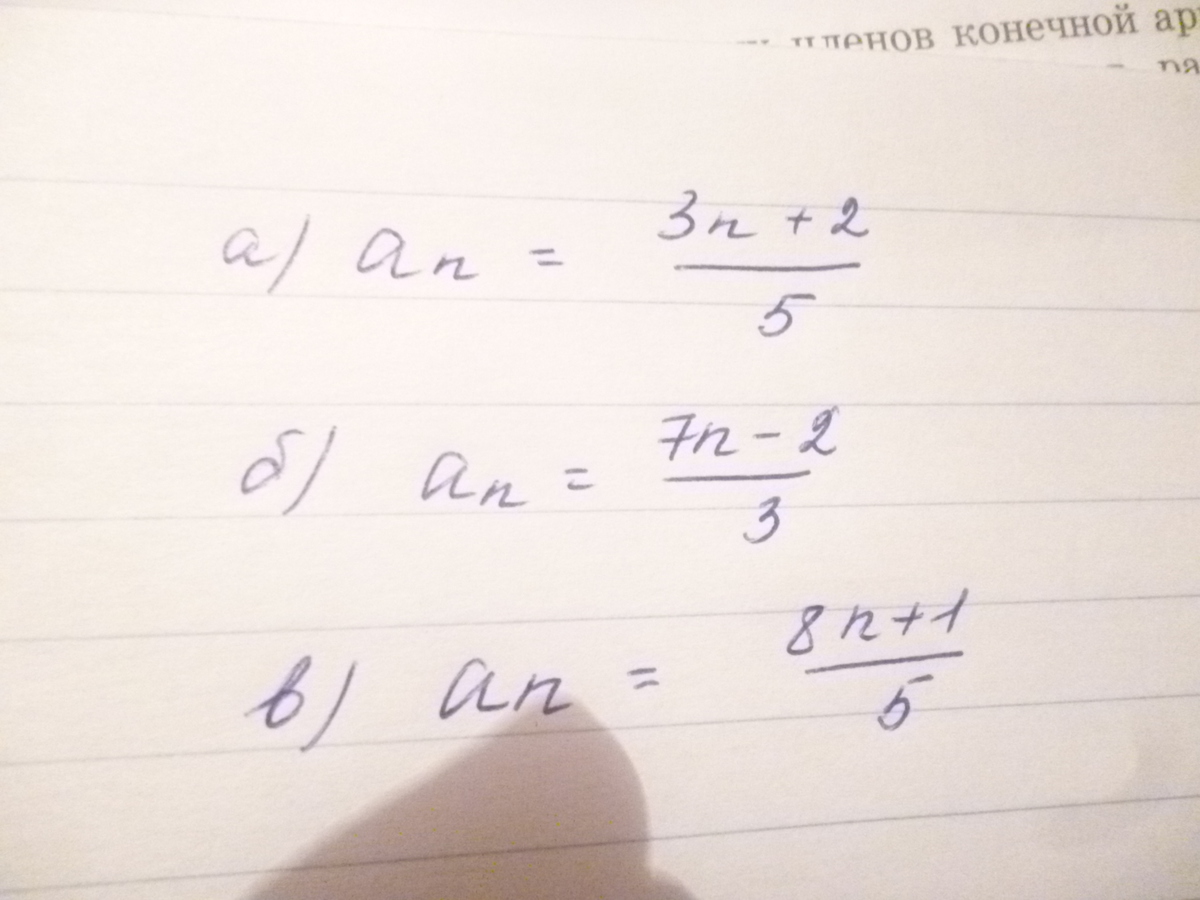 членов конечной ар
а) an = 3n + 2
5
б) an = 7n - 2
3
в) an = 8n+1
5